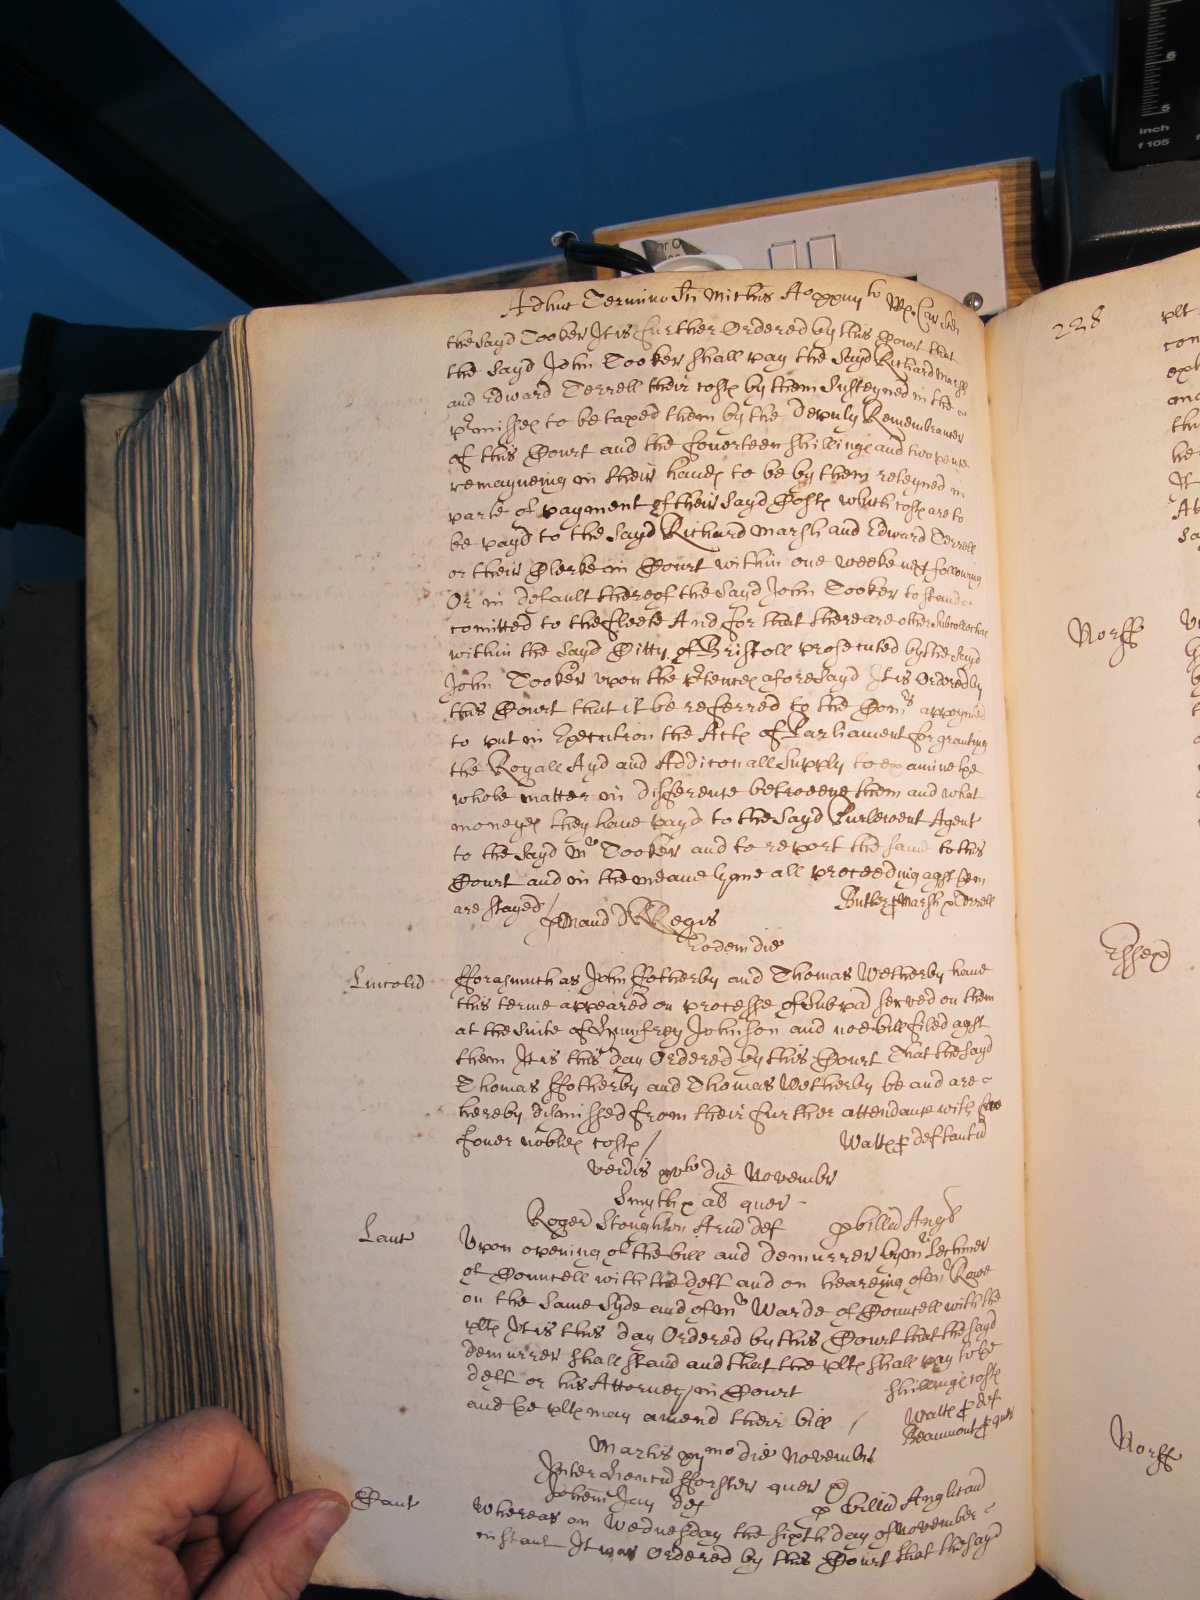 Adhuc Termino Sci Mich̃is A° xxmo
the sayd Tooker It is further Ordered by this Court that
the sayd John Tooker shall pay the sayd Richard Marsh
and Edward Terrell their costs by them susteyned in the
pr̃misses to be taxed them by the Deputy Remembrancer
of this Court and the fourteen shillings and two pence
remayneing in their hands to be by them reteyned in
parte of payment of their sayd Costs which costs are to
be payd to the sayd Richard Marsh and Edward Terrell
or their Clerke in Court within one weeke next following
Or in default thereof the sayd John Tooker to stand
comitted to the fleete And for that there are other Subcollectors
within the sayd Citty of Bristoll prosecuted by the sayd
John Tooker upon the pr̃tences aforesayd It is Ordered by
this Court that it be referred to the Comrs appoynted
to put in Execution the Acts of Parliament for granting
the Royall Ayd and Additionall Supply to examine the
whole matter in difference betweene them and what
moneyes they have payd to the sayd Purlewent Agent
to the sayd Mr Tooker and to report the same to this
Court and in the meane tyme all proceedings agst them
are stayed /
Butler p Marsh & Terrell
p Mand D Regis
Eodem die
Lincolñ
fforasmuch as John ffotherby and Thomas Wetherby have
this terme appeared on processe of Subpã served on them
at the suite of Humfrey Johnson and noe bill filed agst
them It is this day Ordered by this Court That the sayd
Thomas ffotherby and Thomas Wetherby be and are
hereby dismissed from their further attendance with
fower nobles costs /
Walts p deftantib
die Novembr
Smyth & al quer
Roger Stoughton Armĩ def
p billã Angl
Lanc
Upon opening of the bill and demurrer by Mr Lechmer
of Councell with the deft and on heareing of Mr Rowe
on the same syde and of Mr Warde of Councell with the
plts It is this day Ordered by this Court that the sayd
demurrer shall stand and that the plts shall pay to the
deft or his Attorney in Court
shillings costs
and the plts may amend their bill /
Walts p def
Beaumont p quer
Martis die Novembr
Inter fforster quer
Johem Jay def
p billã Anglicanã
Cant
Whereas on Wednesday the sixth day of November
instant It was Ordered by this Court that the sayd
228
plt
con
exh
and
the
he
It
Sa
Norff
Essex
Norff
inch
f 105
6
5